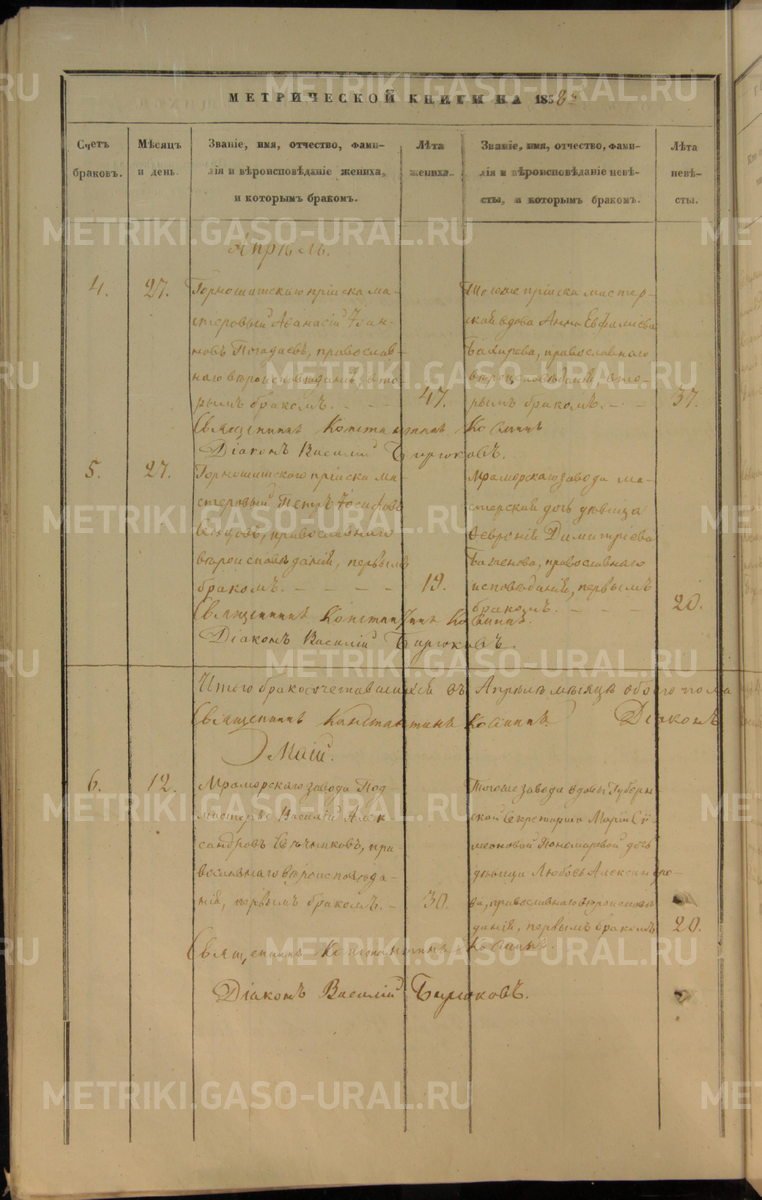 МЕТРИЧЕСКОЙ КНИГИ НА 1858й
Счетъ браковъ.
Мѣсяцъ и день.
Званіе, имя, отчество, фами-
лія и вѣроисповѣданіе жениха,
и которымъ бракомъ.
Лѣта жениха.
Званіе, имя, отчество, фами-
лія и вѣроисповѣданіе невѣ-
сты, и которымъ бракомъ.
Лѣта невѣ-
сты.
Апрѣль.
4.
27.
Горнощитскаго пріиска ма-
стеровый Аѳанасій Іоан-
новъ Погадаевъ, православ-
наго вѣроисповѣданія, вто-
рымъ бракомъ.
47.
Тогоже пріиска мастер-
ская вдова Анна
православнаго
вѣроисповѣданія, вто-
рымъ бракомъ.
37.
Священникъ Константинъ
Діаконъ Василій Бирюковъ.
5.
27.
Горнощитскаго пріиска ма-
стеровый Петръ Іосифовъ
православнаго
вѣроисповѣданія, первымъ
бракомъ.
19.
Мраморскаго завода ма-
стерская дочь дѣвица
Февронія Димитріева
Баженова, православнаго
исповѣданія, первымъ
бракомъ.
20.
Священникъ Константинъ
Діаконъ Василій Бирюковъ.
Итого бракосочетавшихся въ Апрѣлѣ мѣсяцѣ обоего пола
Священникъ Константинъ
Діаконъ
Май.
6.
12.
Мраморскаго завода Под-
мастерье Василій Алек-
сандровъ
пра-
вославнаго вѣроисповѣда-
нія, первымъ бракомъ.
30.
Тогоже завода вдовы Губерн-
ской Секретарши Маріи Си-
меоновой Пономаревой дочь
дѣвица Любовь Александро-
ва, православнаго вѣроисповѣ-
данія, первымъ бракомъ
20.
Священникъ Константинъ
Діаконъ Василій Бирюковъ.
METRIKI.GASO-URAL.RU